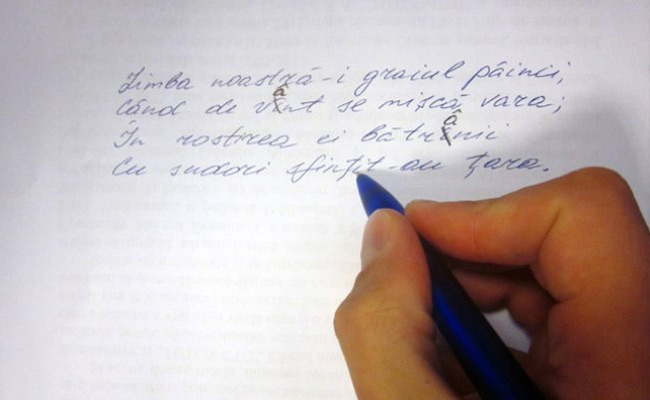 Limba noastră-i graiul pâinii,
Când de vânt se mişcă vara;
În rostirea ei bătrânii
Cu sudori sfinţit-au ţara.